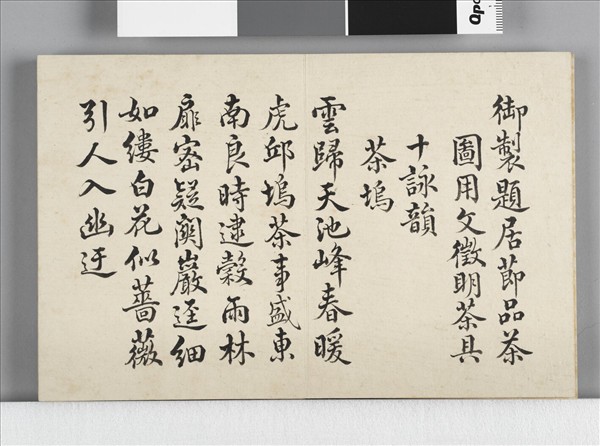 御製題居節品茶
圖用文徵明茶具
十詠韻
茶塢
雲歸天池峰春暖
虎邱塢茶事盛東
南良時逮穀雨林
扉密疑關巖逕細
如縷白花似薔薇
引人入幽迂